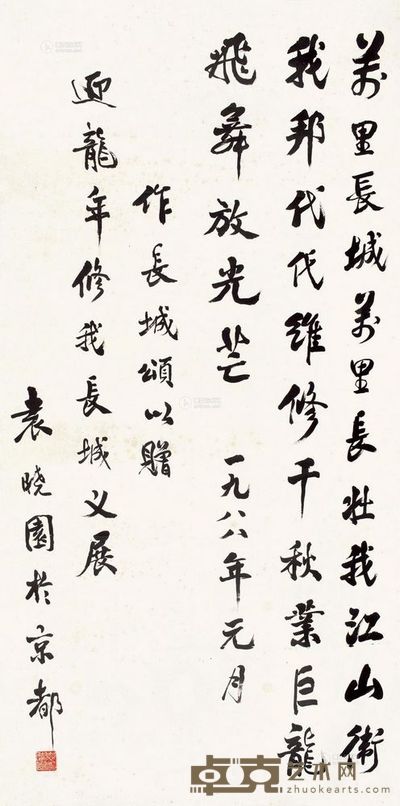 萬里長城萬里長壯我江山衛
我邦代代維修千秋業巨龍
飛舞放光芒 一九八八年元月
作長城頌以贈
迎龍年修我長城义展
袁晓園於京都
卓克艺术网
zhuokearts.com